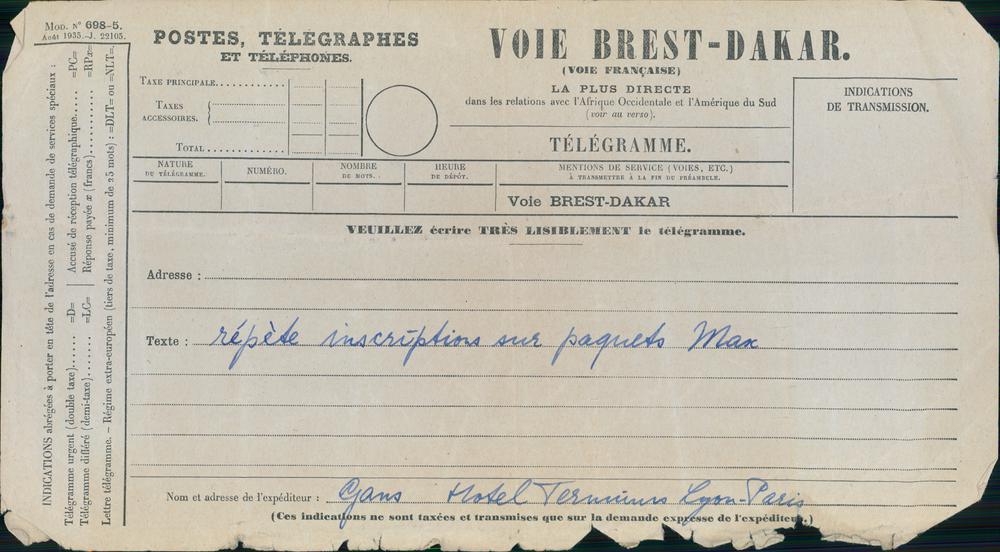 Mod. N° 698-5.
Août 1935.-J. 22105.
INDICATIONS abrégées à porter en tête de l'adresse en cas de demande de services spéciaux :
Télégramme urgent (double taxe)...... =D= | Accusé de réception télégraphique..... =PC=
Télégramme différé (demi-taxe)...... =LC= | Réponse payée x (francs)......... =RPx=
Lettre télégramme. - Régime extra-européen (tiers de taxe, minimum de 25 mots) : =DLT= ou =NLT=.
POSTES, TÉLÉGRAPHES
ET TÉLÉPHONES.
Taxe principale
Taxes
accessoires.
Total
VOIE BREST-DAKAR.
(VOIE FRANÇAISE)
LA PLUS DIRECTE
dans les relations avec l'Afrique Occidentale et l'Amérique du Sud
(voir au verso).
TÉLÉGRAMME.
INDICATIONS
DE TRANSMISSION.
NATURE
DU TÉLÉGRAMME.
NUMÉRO.
NOMBRE
DE MOTS.
HEURE
DE DÉPÔT.
MENTIONS DE SERVICE (VOIES, ETC.)
À TRANSMETTRE À LA FIN DU PRÉAMBULE.
Voie BREST-DAKAR
VEUILLEZ écrire TRÈS LISIBLEMENT le télégramme.
Adresse :
Texte : répète inscriptions sur paquets Max
Nom et adresse de l'expéditeur : Gans Hotel Terminus Lyon-Paris
(Ces indications ne sont taxées et transmises que sur la demande expresse de l'expéditeur.)